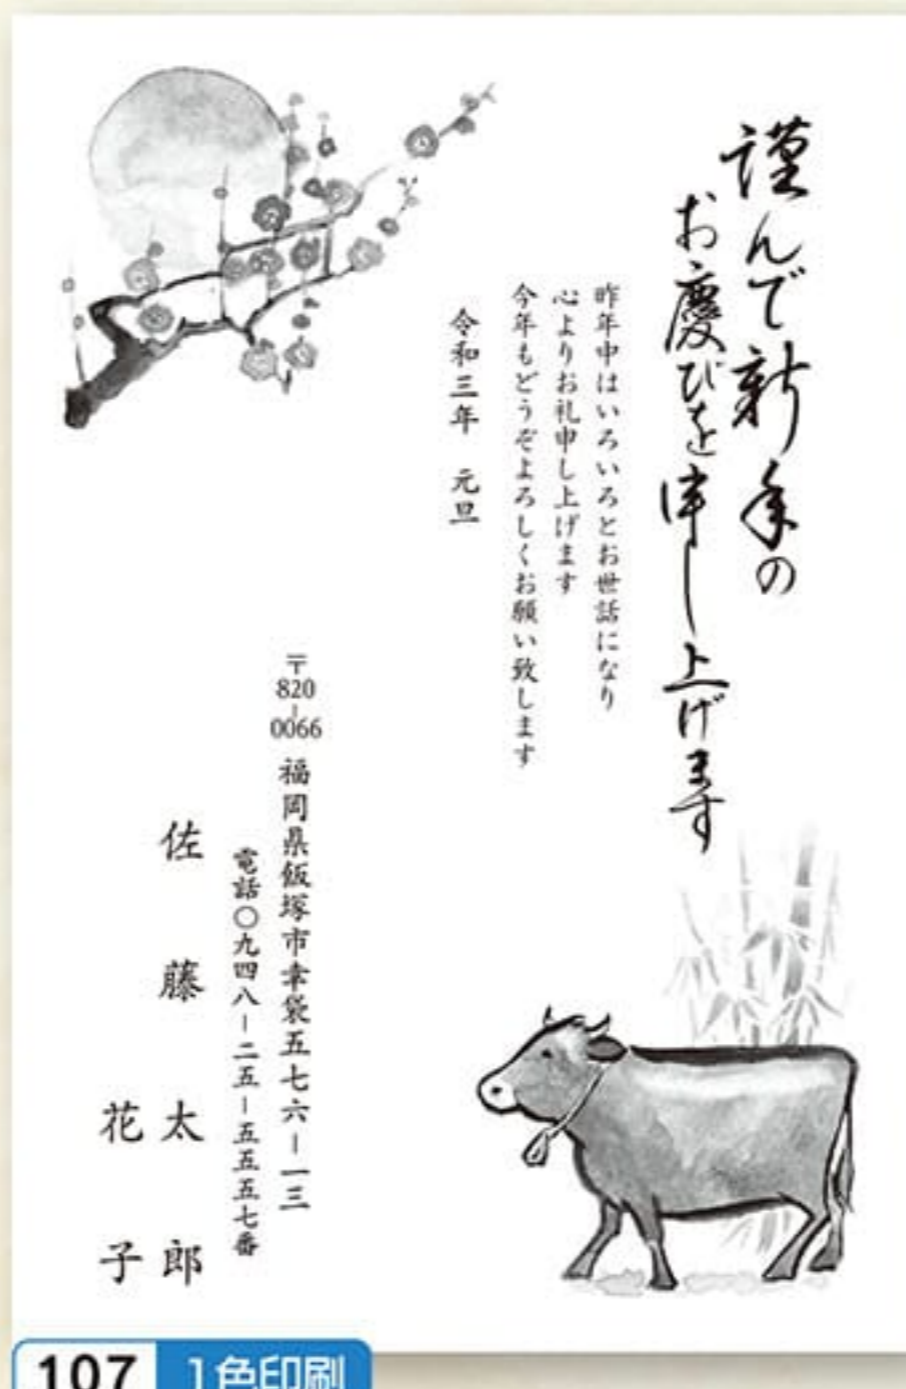 謹んで新年の
お慶びを申し上げます
昨年中はいろいろとお世話になり
心よりお礼申し上げます
今年もどうぞよろしくお願い致します
令和三年　元旦
〒820-0066 福岡県飯塚市幸袋五七六－一三
電話〇九四八－二五－五五五七番
佐藤太郎
花子
107 1色印刷